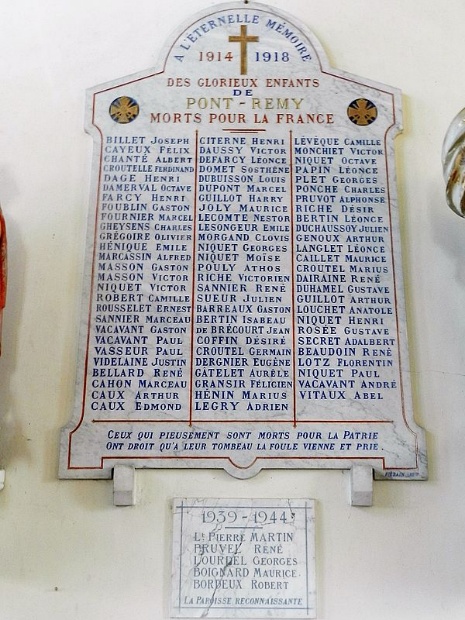 A L'ETERNELLE MÉMOIRE
1914 1918
DES GLORIEUX ENFANTS
DE
PONT-REMY
MORTS POUR LA FRANCE
BILLET JOSEPH
CAYEUX FÉLIX
CHANTÉ ALBERT
CROUTELLE FERDINAND
DAGE HENRI
DAMERVAL OCTAVE
FARCY HENRI
FOUBLIN GASTON
FOURNIER MARCEL
GHEYSENS CHARLES
GRÉGOIRE OLIVIER
HÉNIQUE EMILE
MARCASSIN ALFRED
MASSON GASTON
MASSON VICTOR
NIQUET VICTOR
ROBERT CAMILLE
ROUSSELET ERNEST
SANNIER MARCEAU
VACAVANT GASTON
VACAVANT PAUL
VASSEUR PAUL
VIDELAINE JUSTIN
BELLARD RENÉ
CAHON MARCEAU
CAUX ARTHUR
CAUX EDMOND
CITERNE HENRI
DAUSSY VICTOR
DEFARCY LÉONCE
DOMET SOSTHÈNE
DUBUISSON LOUIS
DUPONT MARCEL
GUILLOT HARRY
JOLY MAURICE
LECOMTE NESTOR
LESONGEUR EMILE
MORGAND CLOVIS
NIQUET GEORGES
NIQUET MOÏSE
POULY ATHOS
RICHE VICTORIEN
SANNIER RENÉ
SUEUR JULIEN
BARREAUX GASTON
BERTIN ISABEAU
DE BRÉCOURT JEAN
COFFIN DÉSIRÉ
CROUTEL GERMAIN
DERGNIER EUGÈNE
GATELET AURÈLE
GRANSIR FÉLICIEN
HÉNIN MARIUS
LEGRY ADRIEN
LÉVÊQUE CAMILLE
MONCHIET VICTOR
NIQUET OCTAVE
PAPIN LÉONCE
PLET GEORGES
PONCHE CHARLES
PRUVOT ALPHONSE
RICHE DÉSIR
BERTIN LÉONCE
DUCHAUSSOY JULIEN
GENOUX ARTHUR
LANGLET LÉONCE
CAILLET MAURICE
CROUTEL MARIUS
DAIRAINE RENÉ
DUHAMEL GUSTAVE
GUILLOT ARTHUR
LOUCHET ANATOLE
NIQUET HENRI
ROSÉE GUSTAVE
SECRET ADALBERT
BEAUDOIN RENÉ
LOTZ FLORENTIN
NIQUET PAUL
VACAVANT ANDRÉ
VITAUX ABEL
CEUX QUI PIEUSEMENT SONT MORTS POUR LA PATRIE
ONT DROIT QU'A LEUR TOMBEAU LA FOULE VIENNE ET PRIE.
1939-1944
Lt PIERRE MARTIN
BRUVEL RENÉ
LOURDEL GEORGES
BOIGNARD MAURICE
BORDEUX ROBERT
LA PAROISSE RECONNAISSANTE